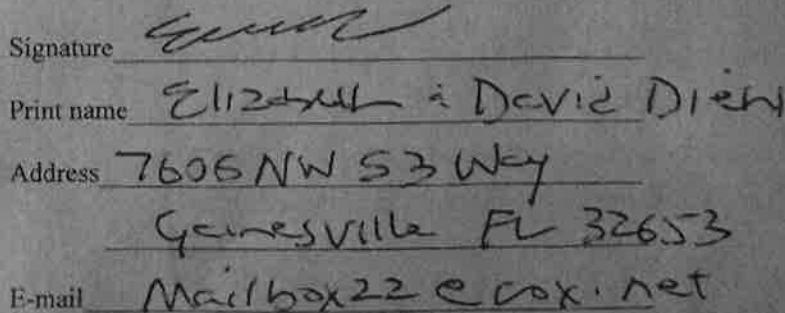 Signature
Print name Elizabeth & David Diehl
Address 7606 NW 53 Way
Gainesville FL 32653
E-mail Mailbox22@cox.net